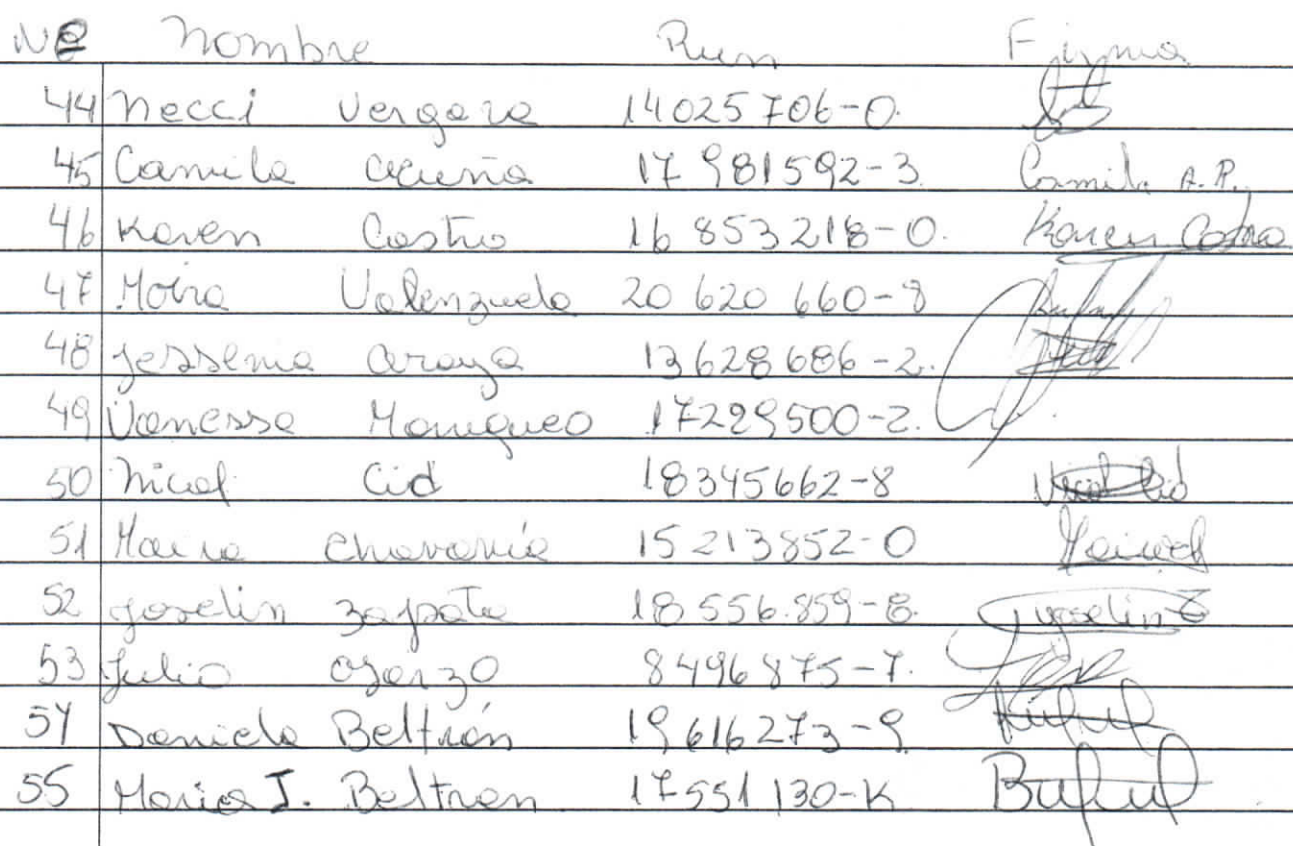 Nº Nombre Run Firma
44 Necci Vergara 14025706-0.
45 Camila Acuña 17 981592-3 Camila A.P.
46 Karen Castro 16 853218-0. Karen Castro
47 Moira Valenzuela 20 620 660-8
48 Jessenia Araya 13628686-2.
49 Vanessa Manqueo 17299500-2.
50 Nicol Cid 18345662-8
51 Maira Chavarría 15 213852-0
52 Joselin Zapata 18 556.859-8. Joselin Z
53 Julia Oyarzo 8496875-7.
54 Daniela Beltrán 19616273-9
55 Maria J. Beltran 17551130-K